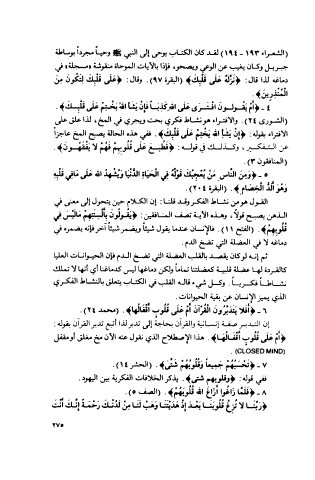 (الشعراء ١٩٣ - ١٩٤) لقد كان الكتاب يوحى إلى النبي ﷺ وحياً مجرداً بوساطة
جبريل وكان يغيب عن الوعي ويصحو، فإذا بالآيات الموحاة منقوشة «مسجلة» في
دماغه لذا قال: ﴿نَزَّلَهُ عَلَى قَلْبِكَ﴾ (البقرة ٩٧). وقال: ﴿عَلَى قَلْبِكَ لِتَكُونَ مِنَ
الْمُنْذِرِينَ﴾.
٤ - ﴿أَمْ يَقُولُونَ افْتَرَى عَلَى اللهِ كَذِبَاً فَإِنْ يَشَأِ اللهُ يَخْتِمْ عَلَى قَلْبِكَ﴾.
(الشورى ٢٤). والافتراء هو نشاط فكري بحت ويجري في المخ، لذا علق على
الافتراء بقوله: ﴿إِنْ يَشَأِ اللهُ يَخْتِمْ عَلَى قَلْبِكَ﴾. ففي هذه الحالة يصبح المخ عاجزاً
عن التفكير، وكذلك في قوله: ﴿فَطُبِعَ عَلَى قُلُوبِهِمْ فَهُمْ لا يَفْقَهُونَ﴾.
(المنافقون ٣).
٥ - ﴿وَمِنَ النَّاسِ مَنْ يُعْجِبُكَ قَوْلُهُ فِي الْحَيَاةِ الدُّنْيَا وَيُشْهِدُ اللهَ عَلَى مَافِي قَلْبِهِ
وَهُوَ أَلَدُّ الْخِصَامِ﴾. (البقرة ٢٠٤).
القول هو من نشاط الفكر وقد قلنا: إن الكلام حين يتحول إلى معنى في
الذهن يصبح قولاً، وهذه الآية تصف المنافقين: ﴿يَقُولُونَ بِأَلْسِنَتِهِمْ مَالَيْسَ فِي
قُلُوبِهِمْ﴾. (الفتح ١١). فالإنسان عندما يقول شيئاً ويضمر شيئاً آخر فإنه يضمره في
دماغه لا في العضلة التي تضخ الدم.
ثم إنه لو كان يقصد بالقلب العضلة التي تضخ الدم فإن الحيوانات العليا
كالقردة لها عضلة قلبية كعضلتنا تماماً ولكن دماغها ليس كدماغنا أي أنها لا تملك
نشاطاً فكرياً. وكل شيء قاله القلب في الكتاب يتعلق بالنشاط الفكري
الذي يميز الإنسان عن بقية الحيوانات.
٦ - ﴿أَفَلا يَتَدَبَّرُونَ الْقُرْآنَ أَمْ عَلَى قُلُوبٍ أَقْفَالُهَا﴾. (محمد ٢٤).
إن التدبر صفة إنسانية والقرآن بحاجة إلى تدبر لذا أتبع تدبر القرآن بقوله:
﴿أَمْ عَلَى قُلُوبٍ أَقْفَالُهَا﴾. هذا الإصطلاح الذي نقول عنه الآن مخ مغلق أو مقفل
(CLOSED MIND).
٧ - ﴿تَحْسَبُهُمْ جَمِيعاً وَقُلُوبُهُمْ شَتَّى﴾. (الحشر ١٤).
ففي قوله: ﴿وقلوبهم شتى﴾. يذكر الخلافات الفكرية بين اليهود.
٨ - ﴿فَلَمَّا زَاغُوا أَزَاغَ اللهُ قُلُوبَهُمْ﴾. (الصف ٥).
﴿رَبَّنَا لا تُزِغْ قُلُوبَنَا بَعْدَ إِذْ هَدَيْتَنَا وَهَبْ لَنَا مِنْ لَدُنْكَ رَحْمَةً إِنَّكَ أَنْتَ
٢٧٥